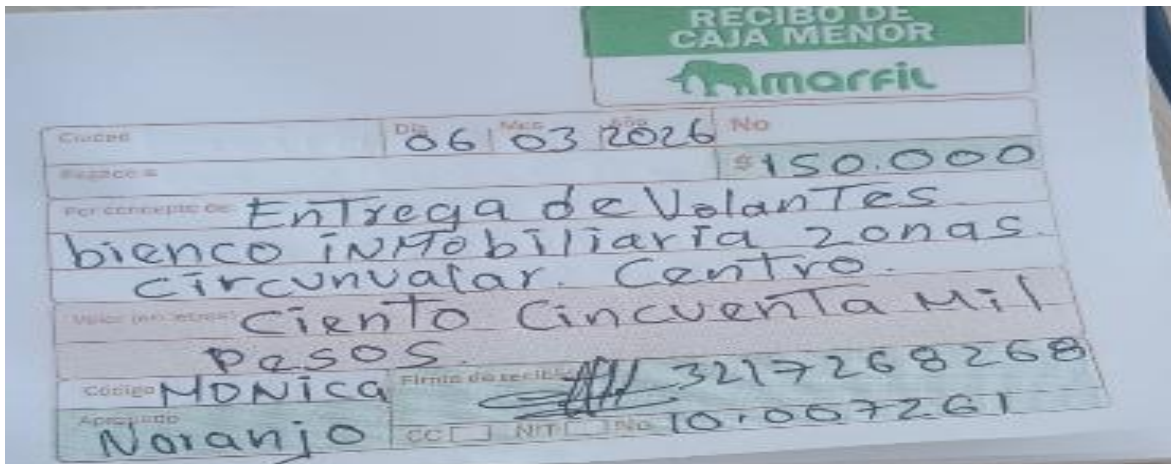 RECIBO DE
CAJA MENOR
marfil
Ciudad Día 06 Mes 03 Año 2026 No
Pagado a $150.000
Por concepto de Entrega de Volantes
bienco inmobiliaria zonas
circunvalar. Centro.
Valor (en letras) Ciento Cincuenta Mil
Pesos
Código MONICA Firma de recibido 3217268268
Aprobado Naranjo CC NIT No 10.007261